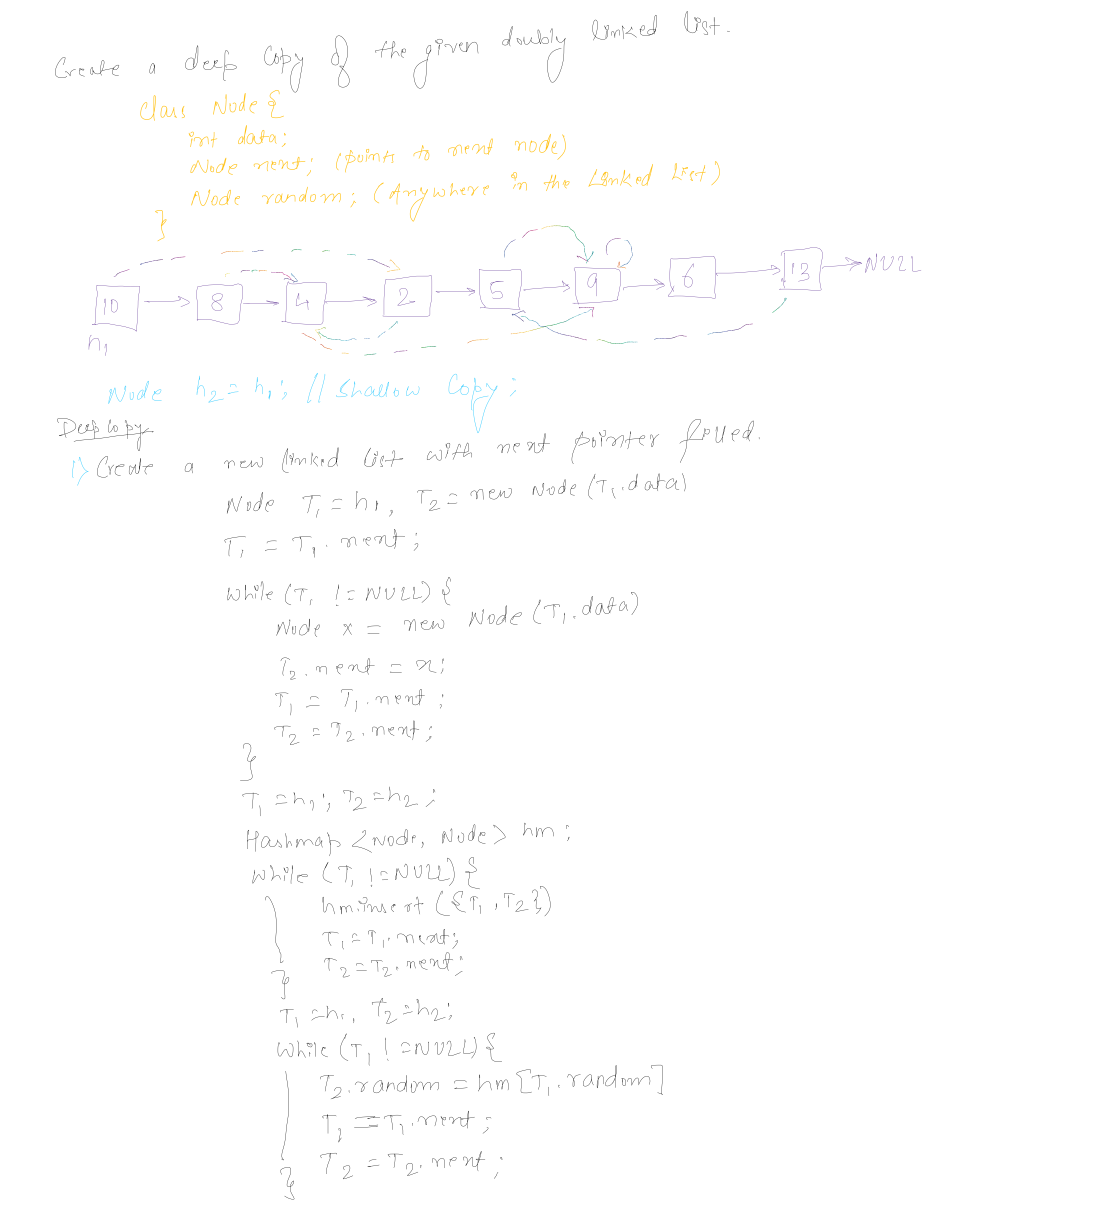 Create a deep copy of the given doubly linked list.
Class Node {
int data;
Node next; (points to next node)
Node random; (Anywhere in the Linked List)
}
10 8 4 2 5 9 6 13 NULL
h1
Node h2 = h1; // Shallow Copy;
Deep Copy
1) Create a new linked list with next pointer filled.
Node T1 = h1, T2 = new Node (T1.data)
T1 = T1.next;
while (T1 != NULL) {
Node x = new Node (T1.data)
T2.next = x;
T1 = T1.next;
T2 = T2.next;
}
T1 = h1; T2 = h2;
Hashmap <Node, Node> hm;
while (T1 != NULL) {
hm.insert ({T1, T2})
T1 = T1.next;
T2 = T2.next;
}
T1 = h1, T2 = h2;
while (T1 != NULL) {
T2.random = hm[T1.random]
T1 = T1.next;
T2 = T2.next;
}